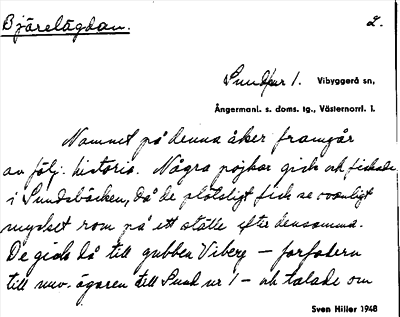 Björelågdan.
2.
Sund nr 1. Vibyggerå sn,
Ångermanl. s. doms. tg., Västernorrl. l.
Namnet på denna åker framgår
av följ. historia. Några pojkar gick och fiskade
i Sundsbäcken, då de plötsligt fick se ovanligt
mycket rom på ett ställe efter densamma.
De gick då till gubben Viberg – förfadern
till nuv. ägaren till Sund nr 1 – och talade om
Sven Hiller 1948